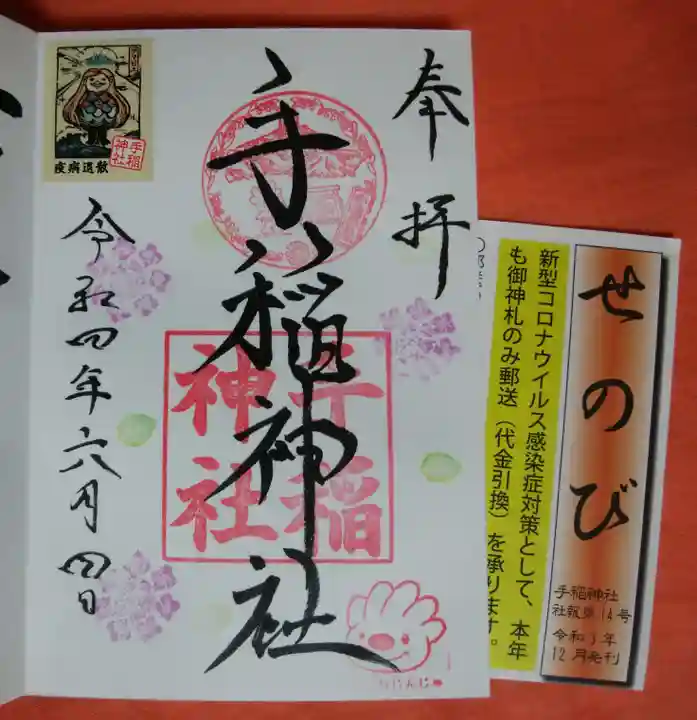 奉拝
手稲神社
手稲
神社
令和四年六月四日
疫病退散
手稲
神社
せのび
手稲神社
社報第14号
令和3年
12月発刊
新型コロナウイルス感染症対策として、本年
も御神札のみ郵送（代金引換）を承ります。